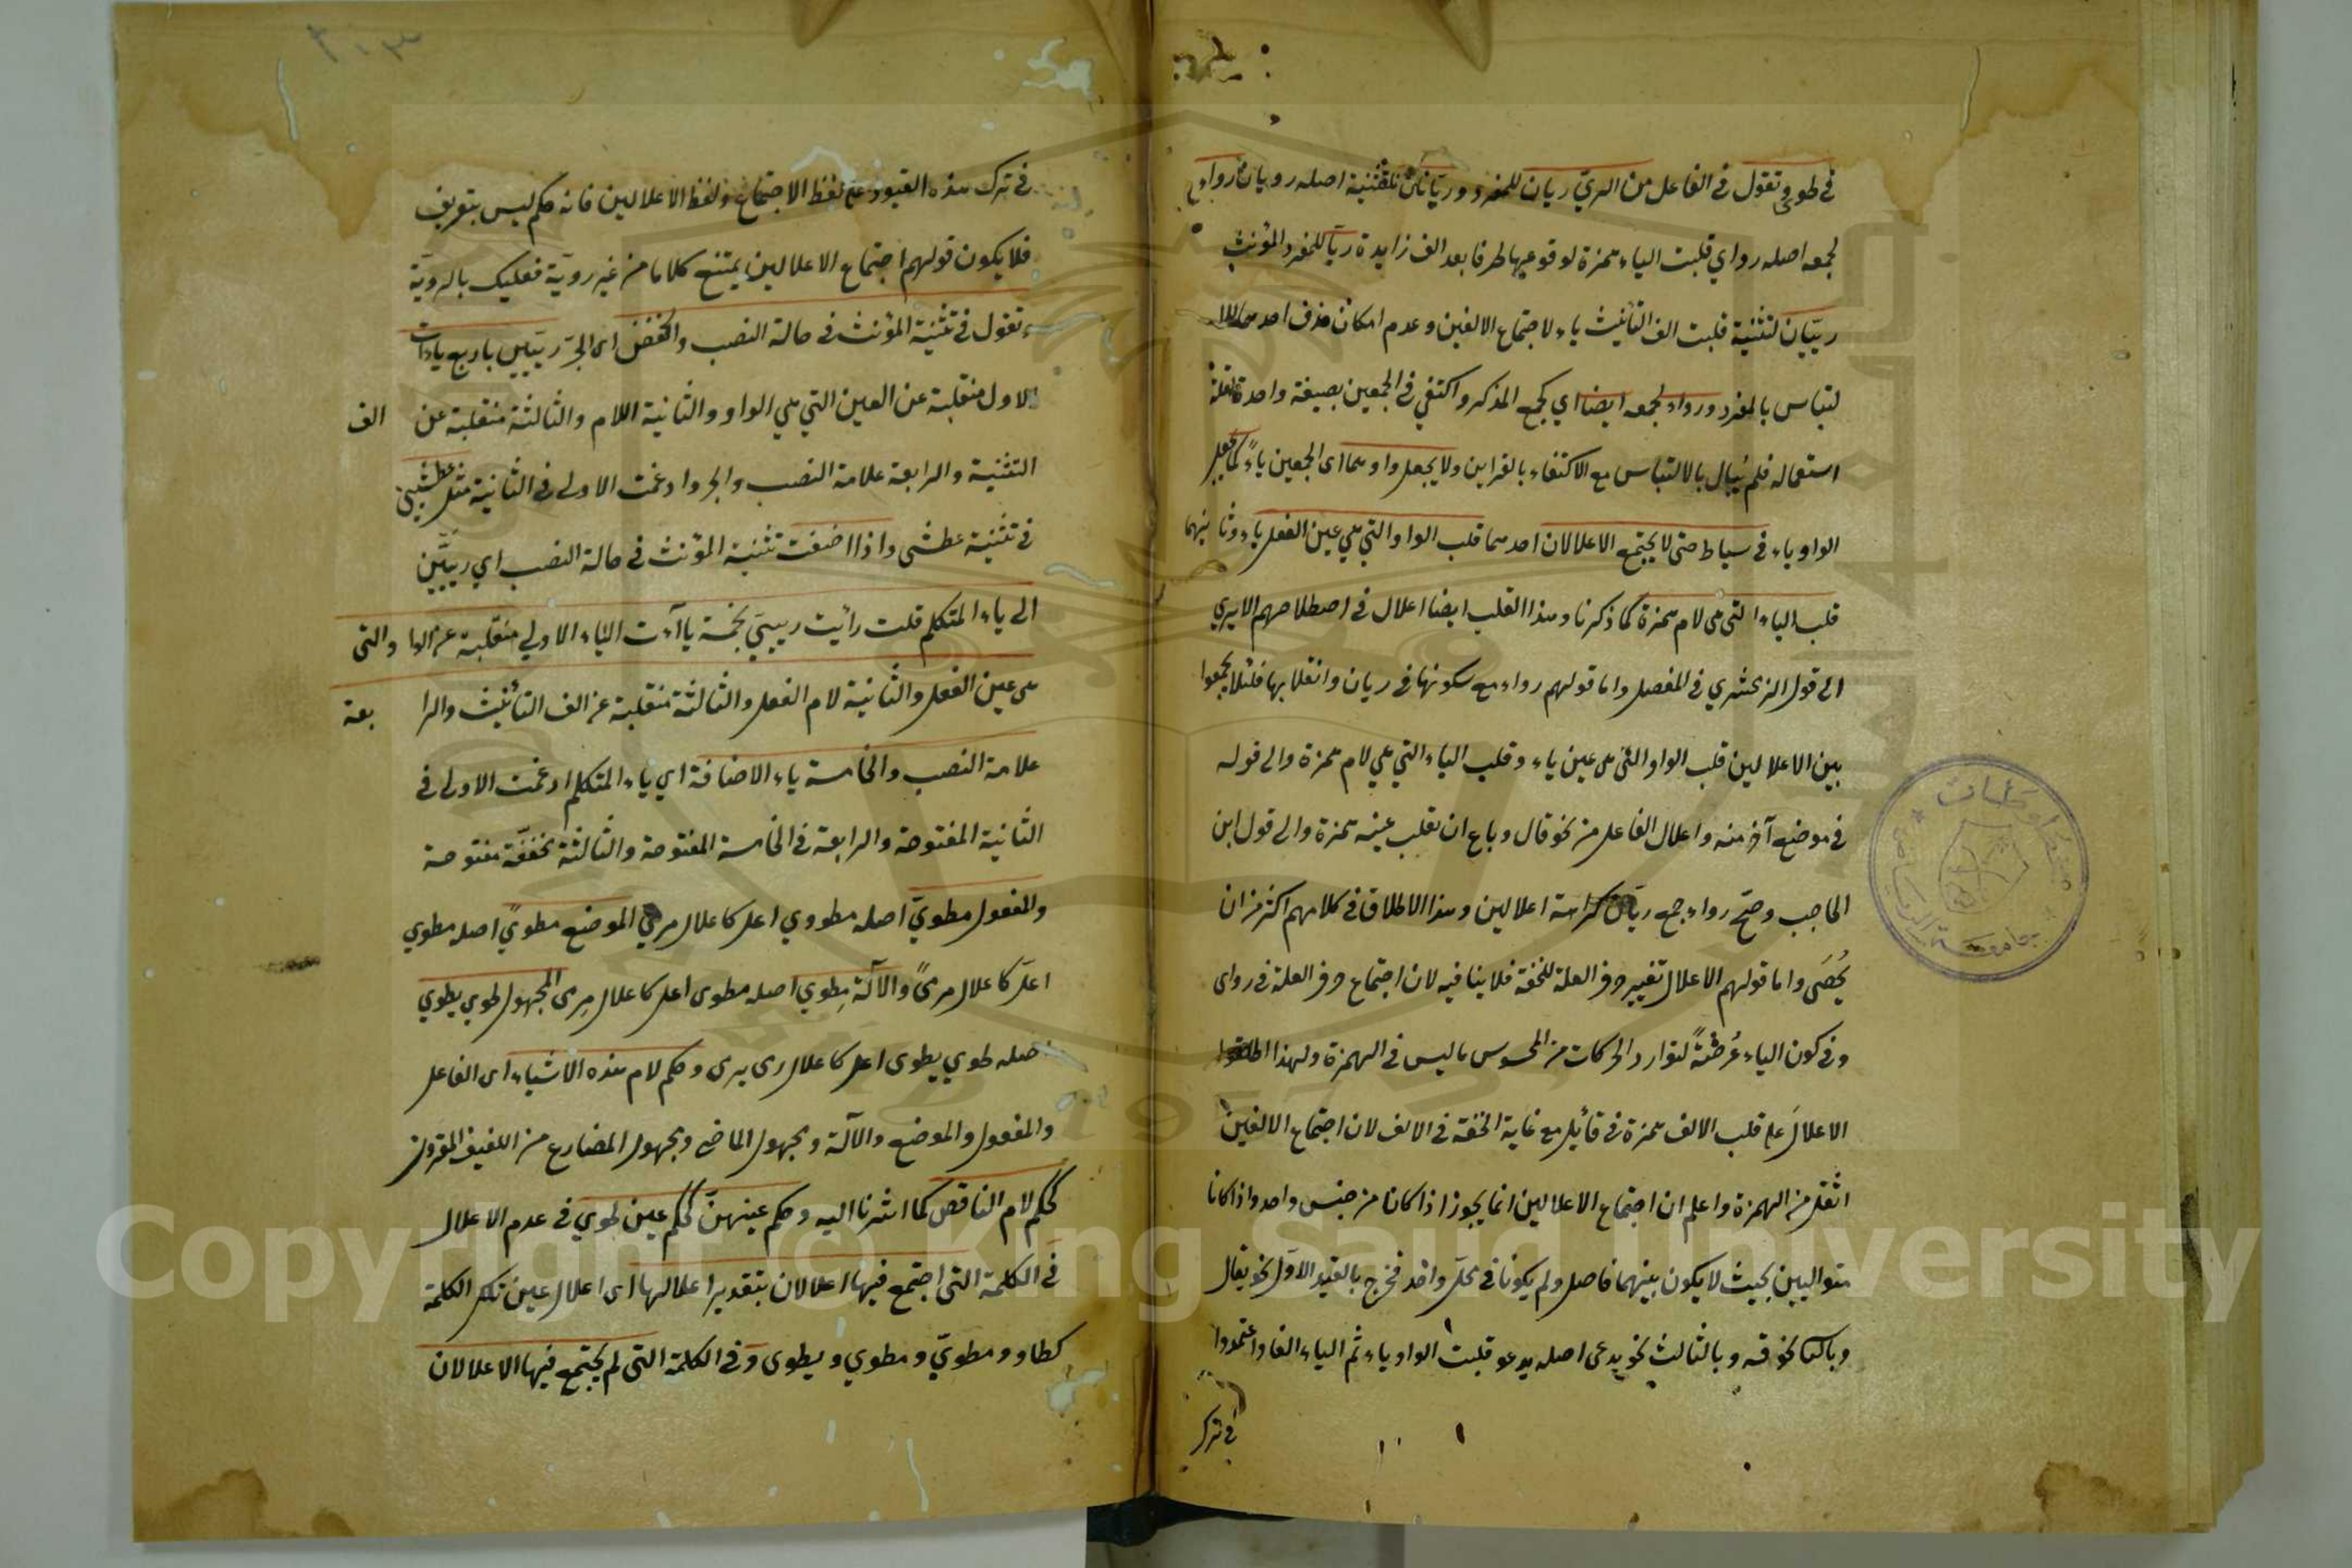 في طوى وتقول في الفاعل من الريّ ريان للمفرد وريّانان للتثنية اصله رويان رواء
لجمعه اصله رواي قلبت الياء همزة لوقوعها طرفا بعد الف زايدة ريّا للمفرد المؤنث
ريّيان لتثنية قلبت الف التأنيث ياء لاجتماع الالفين وعدم امكان حذف احدهما للا
لتباس بالمفرد ورواء لجمعه ايضا اي كجمع المذكر واكتفي في الجمعين بصيغة واحدة لقلة
استعماله فلم يُبال بالالتباس مع الاكتفاء بالقراين ولا يجعل واوهما اى الجمعين ياءً كما جعل
الواو ياء في سياط حتى لا يجتمع الاعلالان احدهما قلب الواو التي هي عين الفعل ياء وثانيهما
قلب الياء التي هى لام همزة كما ذكرنا وهذا القلب ايضا اعلال في اصطلاحهم الا يرى
الى قول الزمخشري في المفصل واما قولهم رواء مع سكونها في ريان وانقلابها فلئلا يجمعوا
بين الاعلالين قلب الواو التى هى عين ياء وقلب الياء التي هي لام همزة والى قوله
في موضع آخر منه واعلال الفاعل من نحو قال وباع ان تقلب عينه همزة والى قول ابن
الحاجب وصحّ رواء جمع ريّان كراهة اعلالين وهذا الاطلاق في كلامهم اكثر من ان
يُحصَى واما قولهم الاعلال تغيير حرف العلة للخفة فلا ينافيه لان اجتماع حرف العلة في رواى
وفي كون الياء عُرضَةً لتوارد الحركات من المحسوس ما ليس في الهمزة ولهذا اطلقوا
الاعلالَ على قلب الالف همزة في قائل مع غاية الخفة في الالف لان اجتماع الالفين
اثقل من الهمزة واعلم ان اجتماع الاعلالين انما يجوز اذا كانا من جنس واحد واذا كانا
متواليين بحيث لا يكون بينهما فاصل ولم يكونا في محلّ واحد فخرج بالقيد الاوّل نحو يقال
وبالثا نحو قه وبالثالث نحو يدعى اصله يدعو قلبت الواو ياء ثم الياء الفا واعتمدوا
في ترك
في ترك هذه القيود على لفظ الاجتماع ولفظ الاعلالين فانه حكم ليس بتعريف
فلا يكون قولهم اجتماع الاعلالين يمتنع كلاما من غير رويّة فعليك بالرويّة
وتقول في تثنية المؤنث في حالة النصب والخفض اى الجرّ ريّيين باربع ياءات
الاول منقلبة عن العين التي هي الواو والثانية اللام والثالثة منقلبة عن الف
التثنية والرابعة علامة النصب والجر وادغمت الاولى في الثانية مثل عطشيين
في تثنية عطشى واذا اضفت تثنية المؤنث في حالة النصب اي ريّيين
الى ياء المتكلم قلت رأيت رييىّ بخمسة ياآت الياء الاولى منقلبة عن الواو التى
هى عين الفعل والثانية لام الفعل والثالثة منقلبة عن الف التأنيث والرابعة
علامة النصب والخامسة ياء الاضافة اي ياء المتكلم ادغمت الاولى في
الثانية المفتوحة والرابعة في الخامسة المفتوحة والثالثة مخففّة مفتوحة
والمفعول مطويّ اصله مطووي اعل كاعلال مرمي الموضع مطوىً اصله مطوي
اعلّ كاعلال مرمىً والآلة مِطوي اصله مطوى اعل كاعلال مِرمى المجهول طوي يطوي
اصله طوي يطوى اعل كاعلال رمى يرمى وحكم لام هذه الاشياء اى الفاعل
والمفعول والموضع والآلة ومجهول الماضي ومجهول المضارع من اللفيف المقرون
كحكم لام الناقص كما اشرنا اليه وحكم عينهنّ كحكم عين طوي في عدم الاعلال
في الكلمة التى اجتمع فيها اعلالان بتقدير اعلالها اى اعلال عين تلك الكلمة
كطاو ومطويّ ومطوي ويطوى وفي الكلمة التى لم يجتمع فيها الاعلالان
Copyright © King Saud University